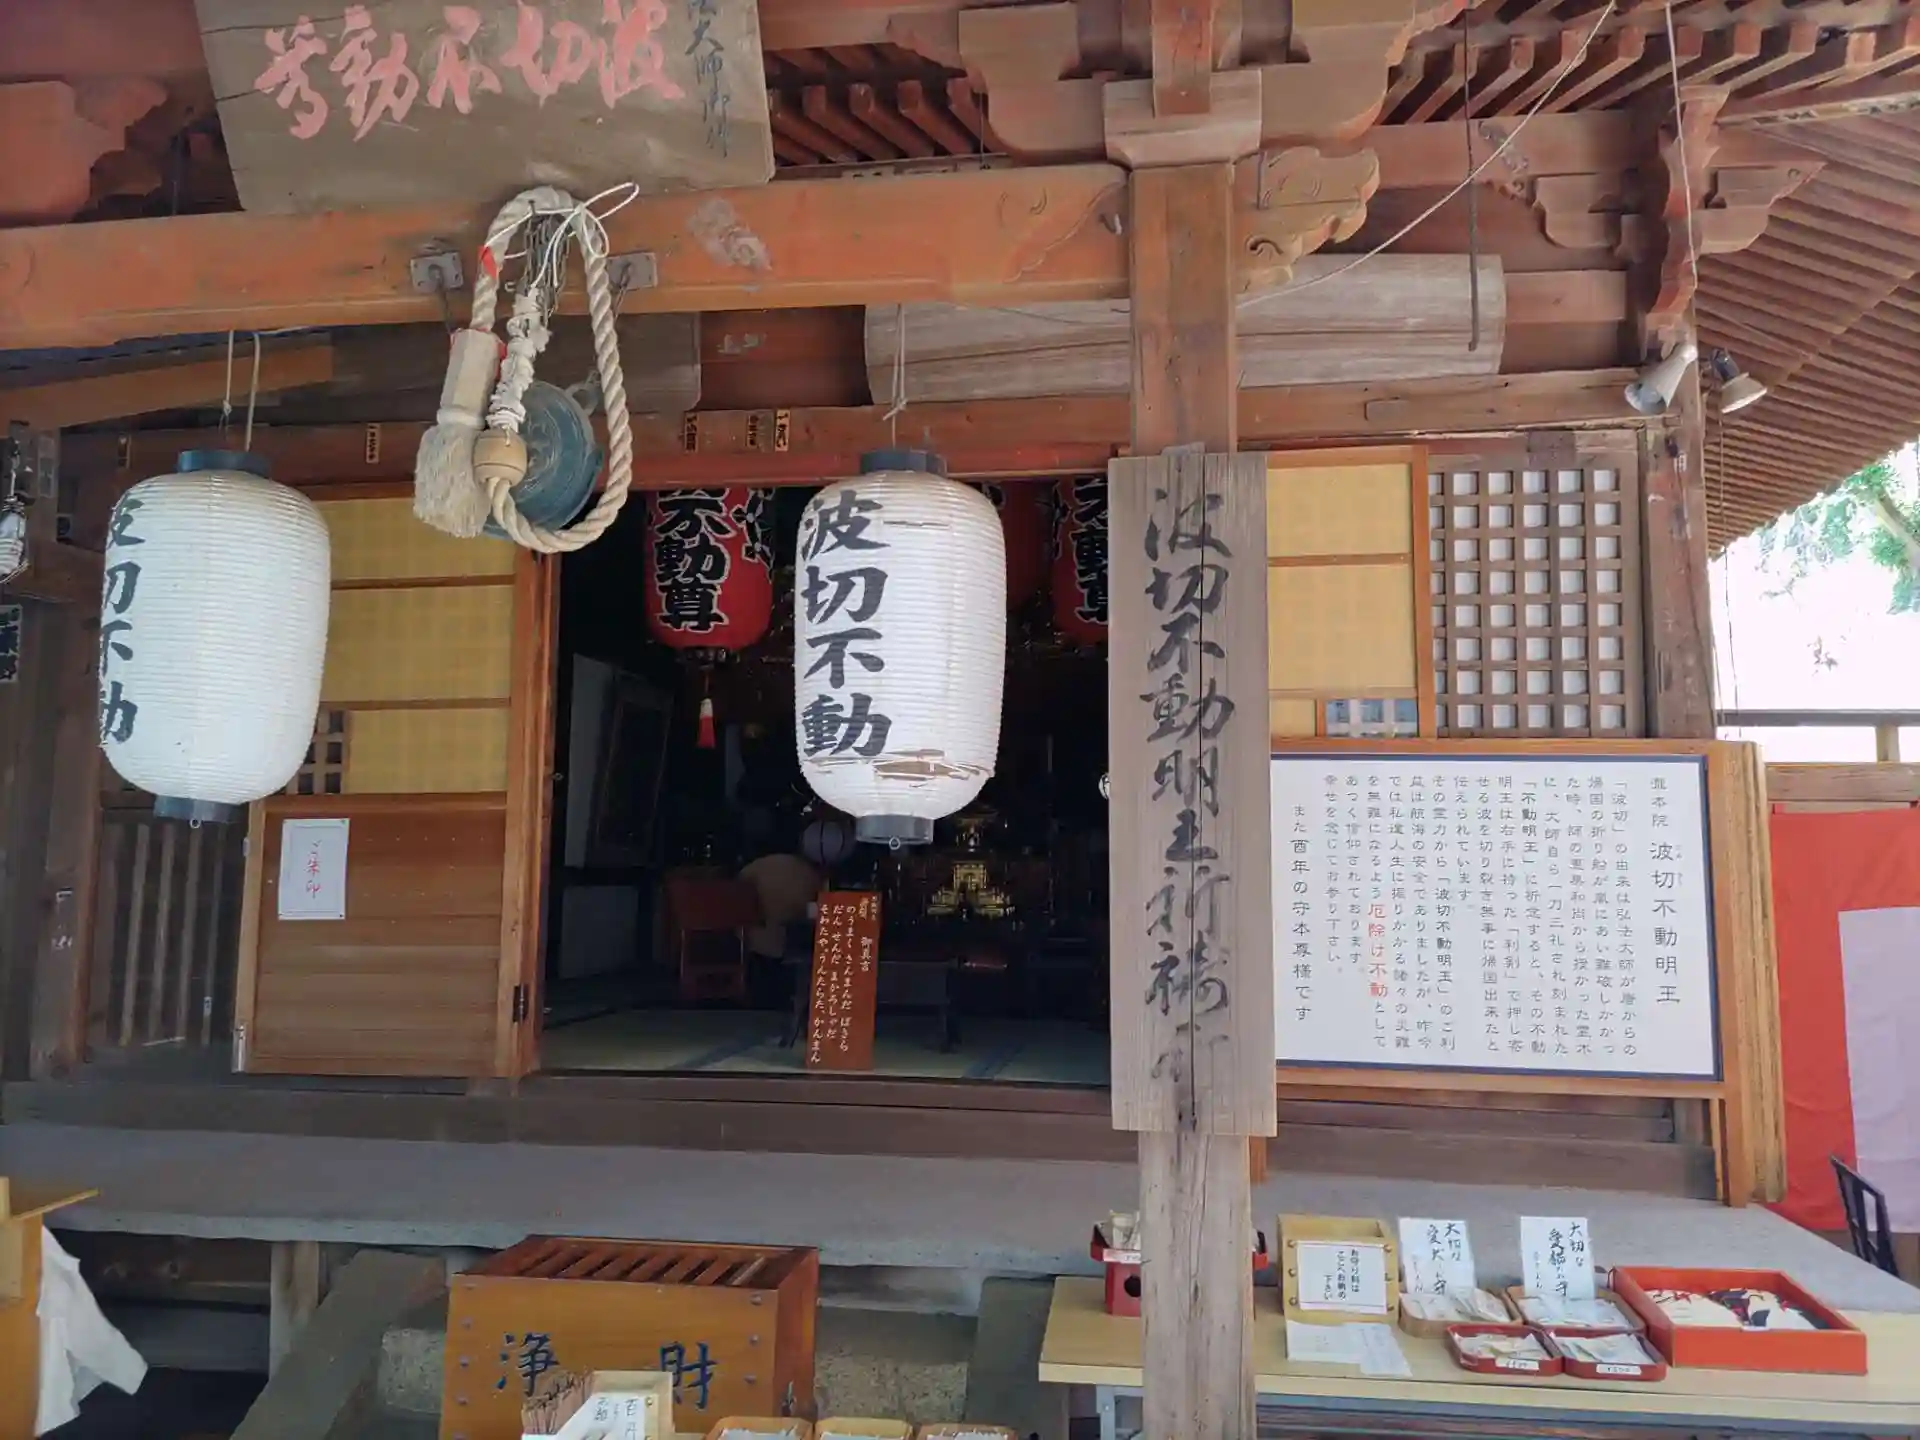 波切不動尊
大師御作
波切不動
波切不動
不動尊
不動
波切不動明王祈祷所
ご朱印
御真言
のうまく さんまんだ ばさら
だん せんだ まかろしゃだ
そわたや うんたらた かんまん
瀧本院 波切不動明王
「波切」の由来は弘法大師が唐からの
帰国の折り船が嵐にあい難破しかかっ
た時、師の恵果和尚から授かった霊木
に、大師自ら一刀三礼され刻まれた
「不動明王」に祈念すると、その不動
明王は右手に持った「利剣」で押し寄
せる波を切り裂き無事に帰国出来たと
伝えられています。
その霊力から「波切不動明王」のご利
益は航海の安全でありましたが、昨今
では私達人生に振りかかる諸々の災難
を無難になるよう厄除け不動として
あつく信仰されております。
幸せを念じてお参り下さい。
また酉年の守本尊様です
浄財
お守り料は
ここへお納め
下さい
大切な
愛犬お守
大切な
愛猫お守